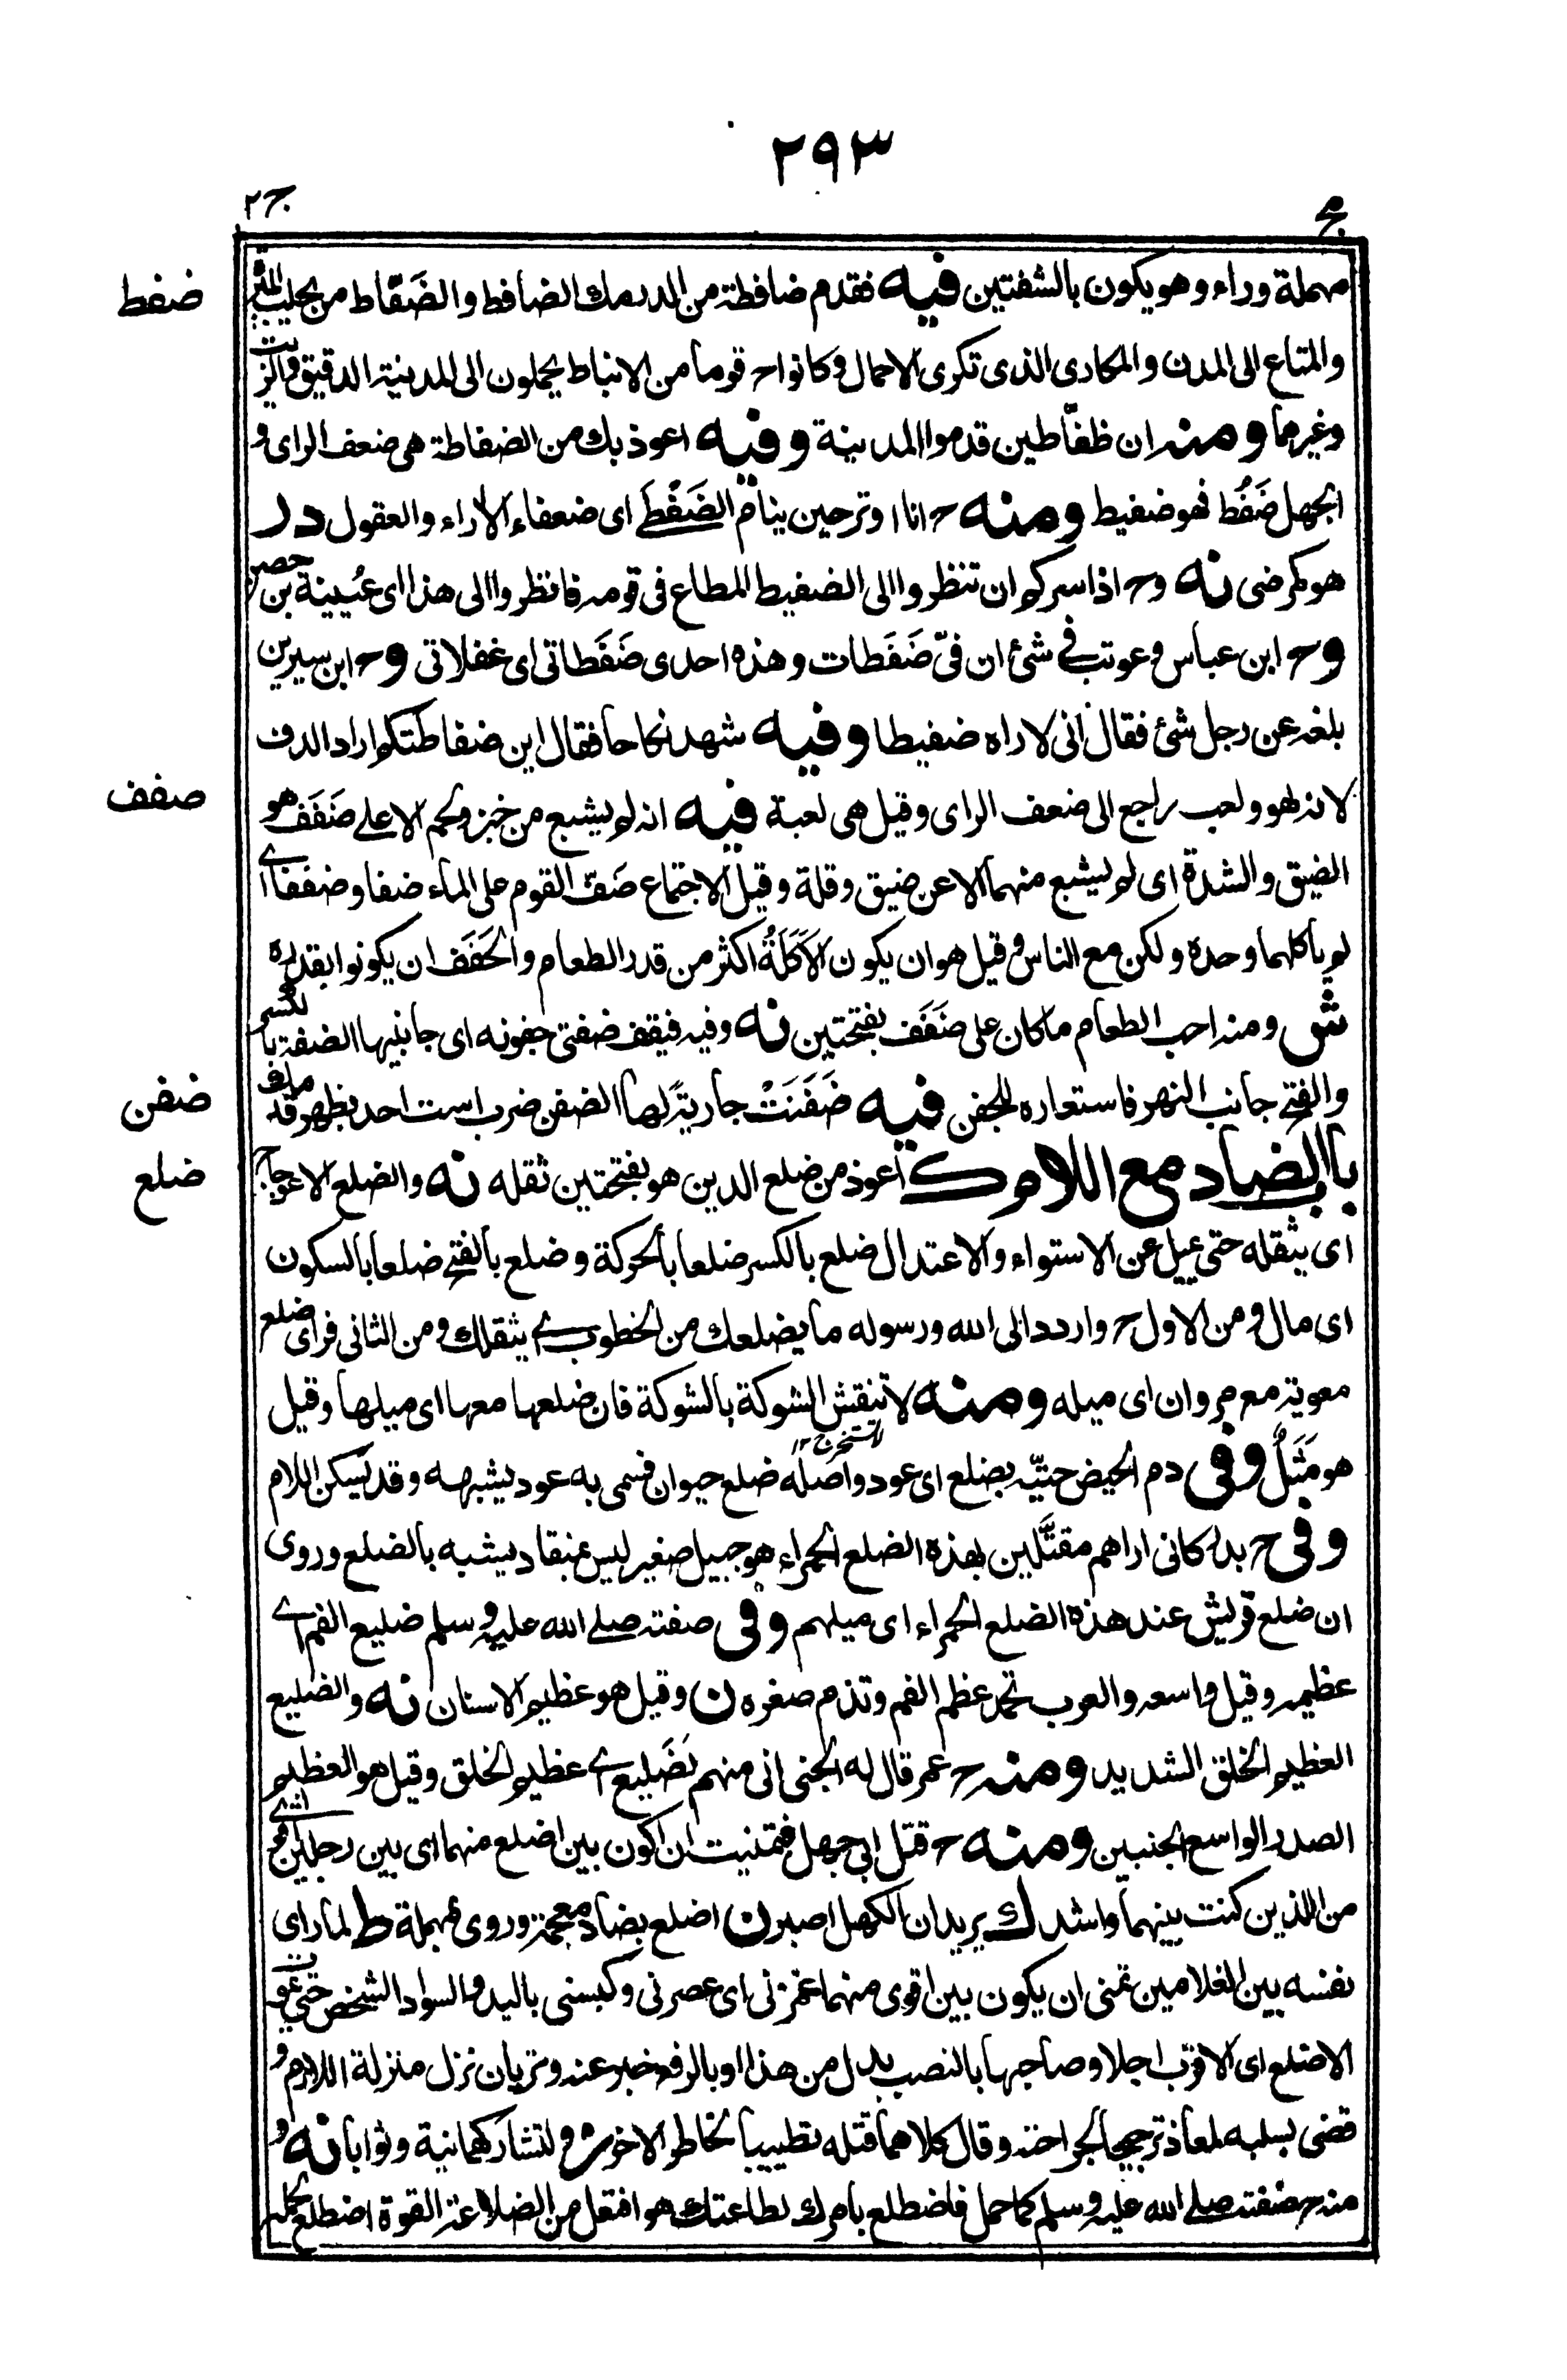 ٢٩٣
ج٢
مج
ضفط
مهملة وراء وهو يكون بالشفتين فيه فقدم ضافطة من الدرمك الضافط والضَفّاط من يجلب المير
والمتاع الى المدن والمكارى الذى تكرى الاحمال وكانوا ح قوما من الانباط يحملون الى المدينة الدقيق والزيت
وغيرهما ومنه ان ظفّاطين قدموا المدينة وفيه اعوذ بك من الضفاطة هى ضعف الراى و
الجهل ضَفُط فهو ضفيط ومنه ح انا اوتر حين ينام الضَفْطَى اى ضعفاء الاراء والعقول در
هو كمرضى نه وح اذا سركم ان تنظروا الى الضفيط المطاع فى قومه فانظروا الى هذا اى عُيينة بن حصن
وح ابن عباس وعوتب فى شئ ان فىّ ضَفَطات وهذه احدى ضَفَطاتى اى غفلاتى وح ابن سيرين
بلغه عن رجل شئ فقال انى لاراه ضفيطا وفيه شهد نكاحا فقال اين ضفاطتكم اراد الدف
صفف
لانه لهو ولعب راجع الى ضعف الراى وقيل هى لعبة فيه انه لم يشبع من خبز ولحم الا على ضَفَف هو
الضيق والشدة اى لم يشبع منهما الا عن ضيق وقلة وقيل الاجتماع ضَفّ القوم على الماء ضفا وضففا اى
لم ياكلهما وحده ولكن مع الناس وقيل هو ان يكون الاَكَلَةُ اكثر من قدر الطعام والحَفَف ان يكونوا بقدره
ش ومنه احب الطعام ما كان على ضَفَف بفتحتين نه وفيه فيقف ضفتى جفونه اى جانبيها الضفة بالكسر
ضفن
والفتح جانب النهر فاستعاره للجفن فيه ضَفَنَتْ جاريةً لها الضفن ضرب است احد بظهر قدمك
ضلع
باب الضاد مع اللام ك اعوذ من ضلع الدين هو بفتحتين ثقله نه والضلع الاعوجاج
اى يثقله حتى يميل عن الاستواء والاعتدال ضلع بالكسر ضلعا بالحركة وضلع بالفتح ضلعا بالسكون
اى مال ومن الاول ح واردد الى الله ورسوله ما يضلعك من الخطوب اى يثقلك ومن الثانى فراى ضلع
معوية مع مروان اى ميله ومنه لا تنقش الشوكة بالشوكة فان ضلعها معها اى ميلها وقيل
لا تستخرج ١٢
هو مَثَلٌ وفى دم الحيض حتيّه بضلع اى عود واصله ضلع حيوان فسمى به عود يشبهه وقد تسكن اللام
وفى ح بدر كانى اراهم مقتَّلين بهذه الضلع الحمراء هو جبيل صغير ليس بمنقاد يشبه بالضلع وروى
ان ضلع قريش عند هذه الضلع الحمراء اى ميلهم وفى صفته صلى الله عليه وسلم ضليع الفم اى
عظيمه وقيل واسعه والعرب تحمد عظم الفم وتذم صغره ن وقيل هو عظيم الاسنان نه والضليع
العظيم الخلق الشديد ومنه ح عمر قال له الجنى انى منهم لضَليع اى عظيم الخلق وقيل هو العظيم
الصدر الواسع الجنبين ومنه ح قتل ابى جهل فتمنيت ان اكون بين اضلع منهما اى بين رجلين اقوى
من الذين كنت بينهما واشد ك يريد ان الكهل اصبر ن اضلع بضاد معجمة وروى بمهملة ط لما راى
نفسه بين الغلامين تمنى ان يكون بين اقوى منهما غمزنى اى عصرنى وكبسنى باليد والسواد الشخص حتى يموت
الاضلع اى الاقرب اجلا وصاحبها بالنصب بدل من هذا او بالرفع خبر عنه وتريان نزل منزلة اللازم و
قضى بسلبه لمعاذ ترجيحا لجراحته وقال كلاهما قتله تطييبا لخاطر الاخر ولتشاركهما نية وثوابا نه و
منه ح صفته صلى الله عليه وسلم كما حمل فاضطلع بامرك لطاعتك هو افتعل من الضلاعة القوة اضطلع بحمله